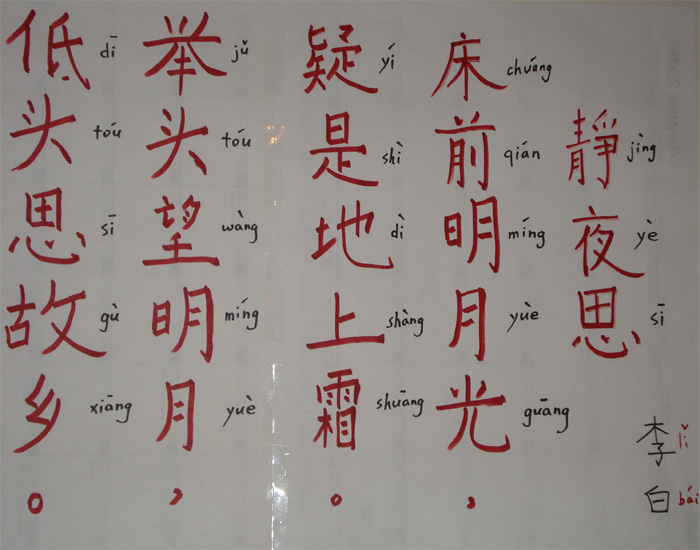 靜夜思
jìng yè sī
李白
lǐ bái
床前明月光，
chuáng qián míng yuè guāng
疑是地上霜。
yí shì dì shàng shuāng
举头望明月，
jǔ tóu wàng míng yuè
低头思故乡。
dī tóu sī gù xiāng